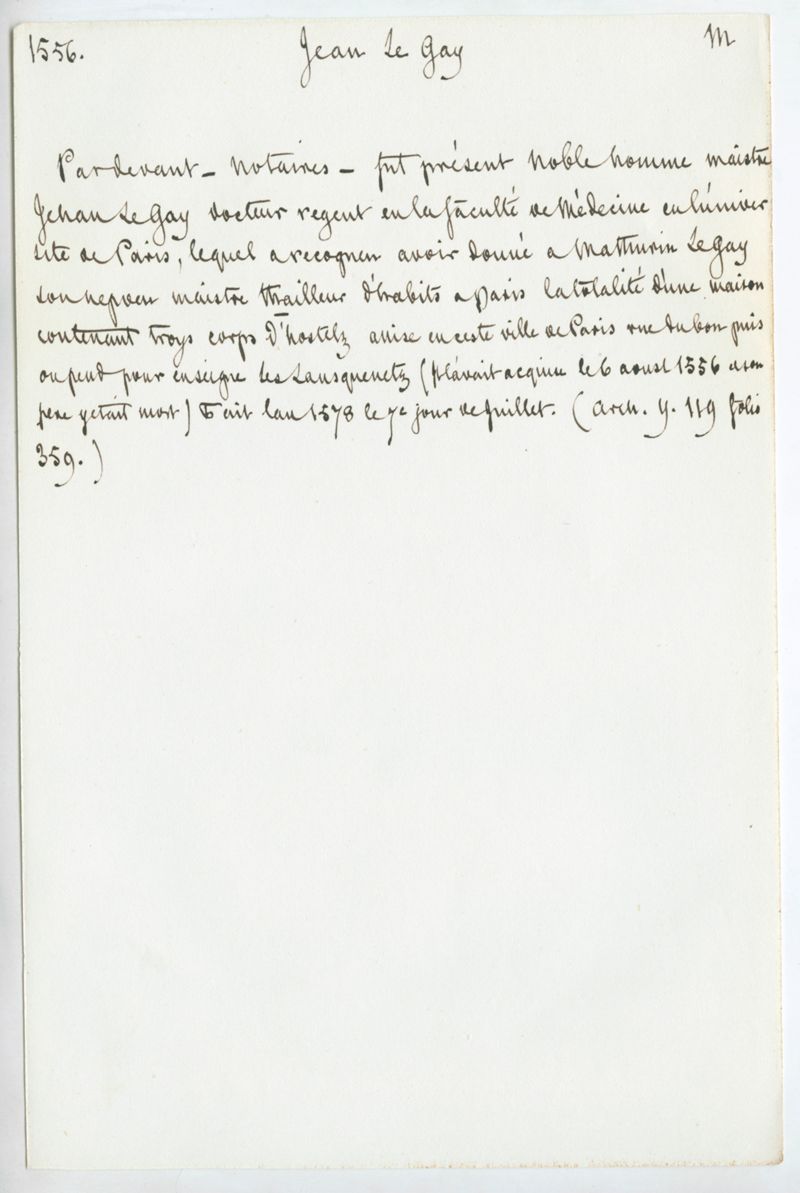 1556. Jean Le Gay M
Pardevant – notaires – fut présent noble homme maistre
Jehan Le Gay docteur regent en la faculté de Médecine en l'univer
site de Paris, lequel a recogneu avoir donné a Mathurin Le Gay
son nepveu maistre thailleur d'habits a Paris la totalité d'une maison
contenant troys corps d'hostelz assise en ceste ville de Paris rue du bon puis
ou pend pour enseigne les Lansquenetz (il l'avait acquise le 6 aoust 1556 et son
pere y etait mort) Fait l'an 1578 le 7e jour de Juillet. (Arch. Y. 119 folio
359.)